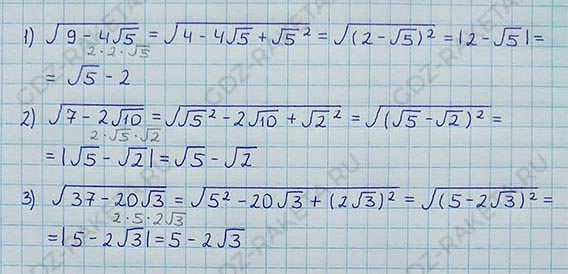 1) √9 - 4√5 = √4 - 4√5 + √5² = √(2 - √5)² = |2 - √5| =
2 · 2 · √5
= √5 - 2
2) √7 - 2√10 = √√5² - 2√10 + √2² = √(√5 - √2)² =
2 · √5 · √2
= |√5 - √2| = √5 - √2
3) √37 - 20√3 = √5² - 20√3 + (2√3)² = √(5 - 2√3)² =
2 · 5 · 2√3
= |5 - 2√3| = 5 - 2√3
GDZ-RAKETA.RU